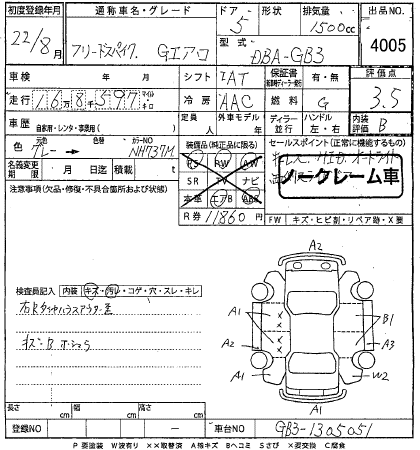 初度登録年月 通称車名・グレード ドア 形状 排気量 出品NO.
22/8月 フリードスパイク Gエアロ 5 1500cc 4005
型式 DBA-GB3
車検 年 月 シフト IAT 保証書 有・無 評価点
走行 16万8千597 マイル キロ 冷房 AAC 燃料 G 3.5
車歴 自家用・レンタ・事業用( ) 定員 人 外車モデル 年 ディーラー 並行 ハンドル 左・右 内装評価 B
色 元色 グレー → カラーNO NH737M 装備品(純正品に限る) セールスポイント(正常に機能するもの)
名義変更期限 月 日迄 積載 t PS RW AW
SR TV ナビ
本革 エアB ABS
ノークレーム車
注意事項(欠品・修復・不具合個所および状態)
R券 11860円 FW キズ・ヒビ割・リペア跡・X要
検査員記入 内装 キズ・汚れ・コゲ・穴・スレ・キレ
A2
A1 A1
A2 B1 A3
A1 W2
A1
長さ cm 幅 cm 高さ cm
登録NO ー 車台NO GB3-1305051
P要塗装 W波有り ××取替済 A線キズ Bヘコミ Sさび ×要交換 C腐食